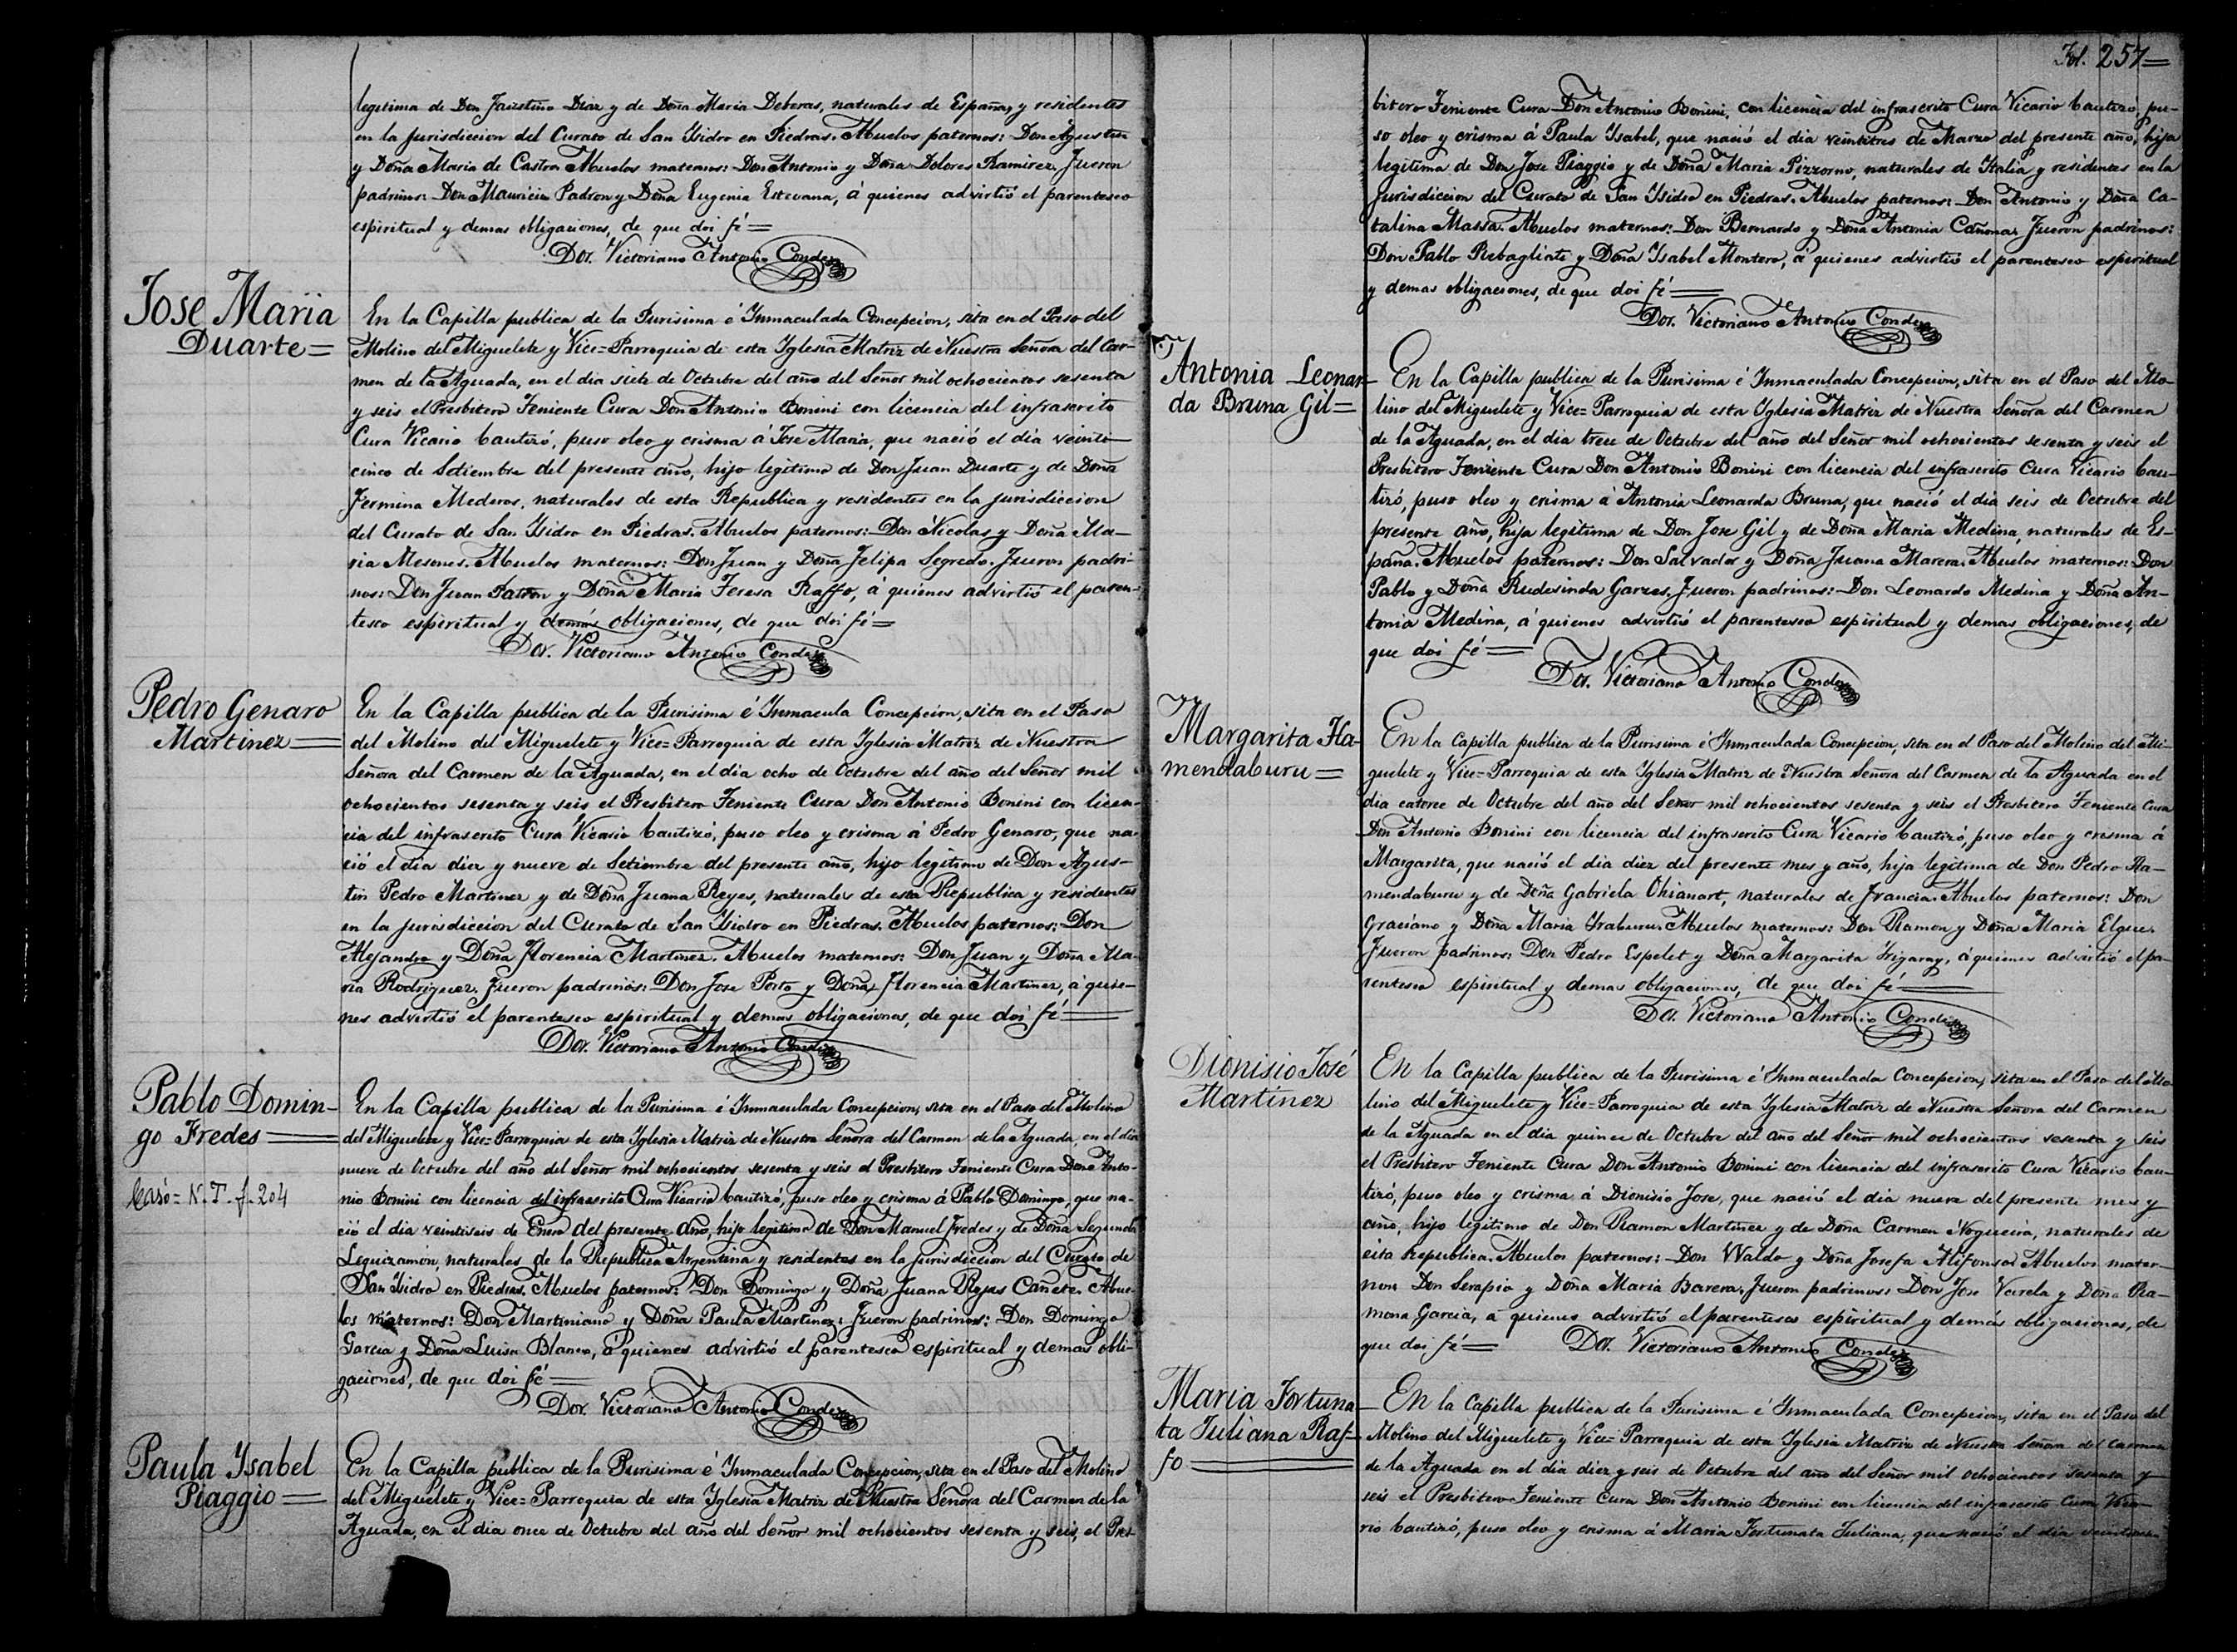 legitima de Don Faustino Diaz y de Doña Maria Deberas, naturales de España, y residentes
en la jurisdiccion del Curato de San Ysidro en Piedras. Abuelos paternos: Don Agustin
y Doña Maria de Castro. Abuelos maternos: Don Antonio y Doña Dolores Ramirez. Fueron
padrinos: Don Mauricio Padron y Doña Eugenia Estevana, á quienes advirtió el parentesco
espiritual y demas obligaciones, de que doi fé=
Dor. Victoriano Antonio Conde
Jose Maria
Duarte=
En la Capilla publica de la Purisima é Ynmaculada Concepcion, sita en el Paso del
Molino del Miguelete y Vice=Parroquia de esta Yglesia Matriz de Nuestra Señora del Car-
men de la Aguada, en el dia siete de Octubre del año del Señor mil ochocientos sesenta
y seis el Presbitero Teniente Cura Don Antonio Bonini con licencia del infrascrito
Cura Vicario bautizó, puso oleo y crisma á Jose Maria, que nació el dia veinti-
cinco de Setiembre del presente año, hijo legitimo de Don Juan Duarte y de Doña
Fermina Mederos, naturales de esta Republica y residentes en la jurisdiccion
del Curato de San Ysidro en Piedras. Abuelos paternos: Don Nicolas y Doña Ma-
ria Mesones. Abuelos maternos: Don Juan y Doña Felipa Segredo. Fueron padri-
nos: Don Juan Patron y Doña Maria Teresa Raffo, á quienes advirtió el paren-
tesco espiritual y demás obligaciones, de que doi fé=
Dor. Victoriano Antonio Conde
Pedro Genaro
Martinez=
En la Capilla publica de la Purisima é Ynmacula Concepcion, sita en el Paso
del Molino del Miguelete y Vice=Parroquia de esta Yglesia Matriz de Nuestra
Señora del Carmen de la Aguada, en el dia ocho de Octubre del año del Señor mil
ochocientos sesenta y seis el Presbitero Teniente Cura Don Antonio Bonini con licen-
cia del infrascrito Cura Vicario bautizó, puso oleo y crisma á Pedro Genaro, que na-
ció el dia diez y nueve de Setiembre del presente año, hijo legitimo de Don Agus-
tin Pedro Martinez y de Doña Juana Reyes, naturales de esta Republica y residentes
en la jurisdiccion del Curato de San Ysidro en Piedras. Abuelos paternos: Don
Alejandro y Doña Florencia Martinez. Abuelos maternos: Don Juan y Doña Ma-
ria Rodriguez. Fueron padrinos: Don Jose Porto y Doña Florencia Martinez, á quie-
nes advirtió el parentesco espiritual y demas obligaciones, de que doi fé=
Dor. Victoriano Antonio Conde
Pablo Domin-
go Fredes=
Casó= N. T. f. 204
En la Capilla publica de la Purisima é Ynmaculada Concepcion, sita en el Paso del Molino
del Miguelete y Vice=Parroquia de esta Yglesia Matriz de Nuestra Señora del Carmen de la Aguada, en el dia
nueve de Octubre del año del Señor mil ochocientos sesenta y seis el Presbitero Teniente Cura Don Anto-
nio Bonini con licencia del infrascrito Cura Vicario bautizó, puso oleo y crisma á Pablo Domingo, que na-
ció el dia veintiseis de Enero del presente año, hijo legitimo de Don Manuel Fredes y de Doña Segunda
Leguizamon, naturales de la Republica Argentina y residentes en la jurisdiccion del Curato de
San Ysidro en Piedras. Abuelos paternos: Don Domingo y Doña Juana Rojas Cañete. Abue-
los maternos: Don Martiniano y Doña Paula Martinez. Fueron padrinos: Don Domingo
Garcia y Doña Luisa Blanco, á quienes advirtió el parentesco espiritual y demas obli-
gaciones, de que doi fé=
Dor. Victoriano Antonio Conde
Paula Ysabel
Piaggio=
En la Capilla publica de la Purisima é Ynmaculada Concepcion, sita en el Paso del Molino
del Miguelete y Vice=Parroquia de esta Yglesia Matriz de Nuestra Señora del Carmen de la
Aguada, en el dia once de Octubre del año del Señor mil ochocientos sesenta y seis, el Pres-
Fol. 257=
bitero Teniente Cura Don Antonio Bonini, con licencia del infrascrito Cura Vicario bautizó, pu-
so oleo y crisma á Paula Ysabel, que nació el dia veintitres de Marzo del presente año, hija
legitima de Don Jose Piaggio y de Doña Maria Pizzorno, naturales de Italia y residentes en la
jurisdiccion del Curato de San Ysidro en Piedras. Abuelos paternos: Don Antonio y Doña Ca-
talina Massa. Abuelos maternos: Don Bernardo y Doña Antonia Cañona. Fueron padrinos:
Don Pablo Rebagliate y Doña Ysabel Montero, á quienes advirtió el parentesco espiritual
y demas obligaciones, de que doi fé=
Dor. Victoriano Antonio Conde
Antonia Leonar-
da Bruna Gil=
En la Capilla publica de la Purisima é Ynmaculada Concepcion, sita en el Paso del Mo-
lino del Miguelete y Vice=Parroquia de esta Yglesia Matriz de Nuestra Señora del Carmen
de la Aguada, en el dia trece de Octubre del año del Señor mil ochocientos sesenta y seis el
Presbitero Teniente Cura Don Antonio Bonini con licencia del infrascrito Cura Vicario bau-
tizó, puso oleo y crisma á Antonia Leonarda Bruna, que nació el dia seis de Octubre del
presente año, hija legitima de Don Jose Gil y de Doña Maria Medina, naturales de Es-
paña. Abuelos paternos: Don Salvador y Doña Juana Marera. Abuelos maternos: Don
Pablo y Doña Rudesinda Garzes. Fueron padrinos: Don Leonardo Medina y Doña An-
tonia Medina, á quienes advirtió el parentesco espiritual y demas obligaciones, de
que doi fé=
Dor. Victoriano Antonio Conde
Margarita Ha-
mendaburu=
En la Capilla publica de la Purisima é Ynmaculada Concepcion, sita en el Paso del Molino del Mi-
guelete y Vice=Parroquia de esta Yglesia Matriz de Nuestra Señora del Carmen de la Aguada en el
dia catorce de Octubre del año del Señor mil ochocientos sesenta y seis el Presbitero Teniente Cura
Don Antonio Bonini con licencia del infrascrito Cura Vicario bautizó, puso oleo y crisma á
Margarita, que nació el dia diez del presente mes y año, hija legitima de Don Pedro Ha-
mendaburu y de Doña Gabriela Ohianart, naturales de Francia. Abuelos paternos: Don
Graciano y Doña Maria Yraburu. Abuelos maternos: Don Ramon y Doña Maria Elgue.
Fueron padrinos: Don Pedro Espelet y Doña Margarita Yrigaray, á quienes advirtió el pa-
rentesco espiritual y demas obligaciones, de que doi fé=
Dor. Victoriano Antonio Conde
Dionisio José
Martinez
En la Capilla publica de la Purisima é Ynmaculada Concepcion, sita en el Paso del Mo-
lino del Miguelete y Vice=Parroquia de esta Yglesia Matriz de Nuestra Señora del Carmen
de la Aguada en el dia quince de Octubre del año del Señor mil ochocientos sesenta y seis
el Presbitero Teniente Cura Don Antonio Bonini con licencia del infrascrito Cura Vicario bau-
tizó, puso oleo y crisma á Dionisio Jose, que nació el dia nueve del presente mes y
año, hijo legitimo de Don Ramon Martinez y de Doña Carmen Nogueira, naturales de
esta Republica. Abuelos paternos: Don Waldo y Doña Josefa Alifonso. Abuelos mater-
nos: Don Serapio y Doña Maria Barera. Fueron padrinos: Don Jose Varela y Doña Ra-
mona Garcia, á quienes advirtió el parentesco espiritual y demás obligaciones, de
que doi fé= Dor. Victoriano Antonio Conde
Maria Fortuna-
ta Juliana Raf-
fo=
En la Capilla publica de la Purisima é Ynmaculada Concepcion, sita en el Paso del
Molino del Miguelete y Vice=Parroquia de esta Yglesia Matriz de Nuestra Señora del Carmen
de la Aguada en el dia diez y seis de Octubre del año del Señor mil ochocientos sesenta y
seis el Presbitero Teniente Cura Don Antonio Bonini con licencia del infrascrito Cura Vica-
rio bautizó, puso oleo y crisma á Maria Fortunata Juliana, que nació el dia